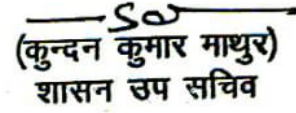 Sd
(कुन्दन कुमार माथुर)
शासन उप सचिव